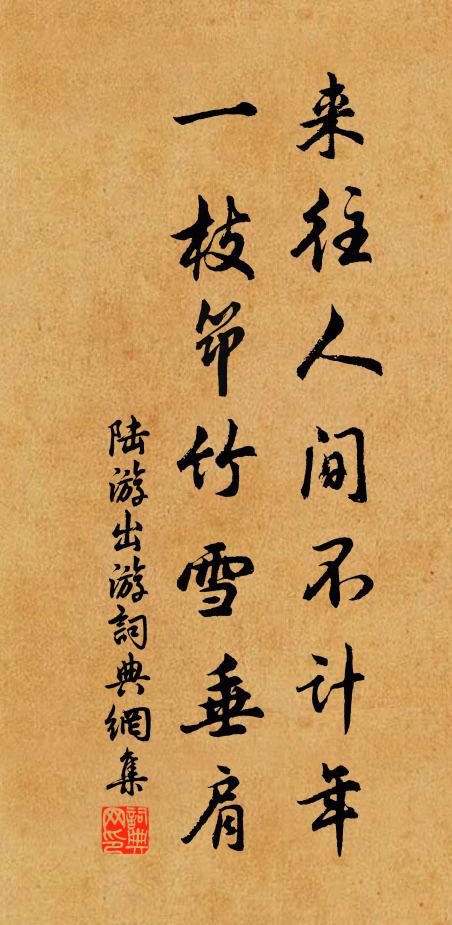 来往人间不计年
一枝筇竹雪垂肩
陆游出游詞典網集
詞典网印